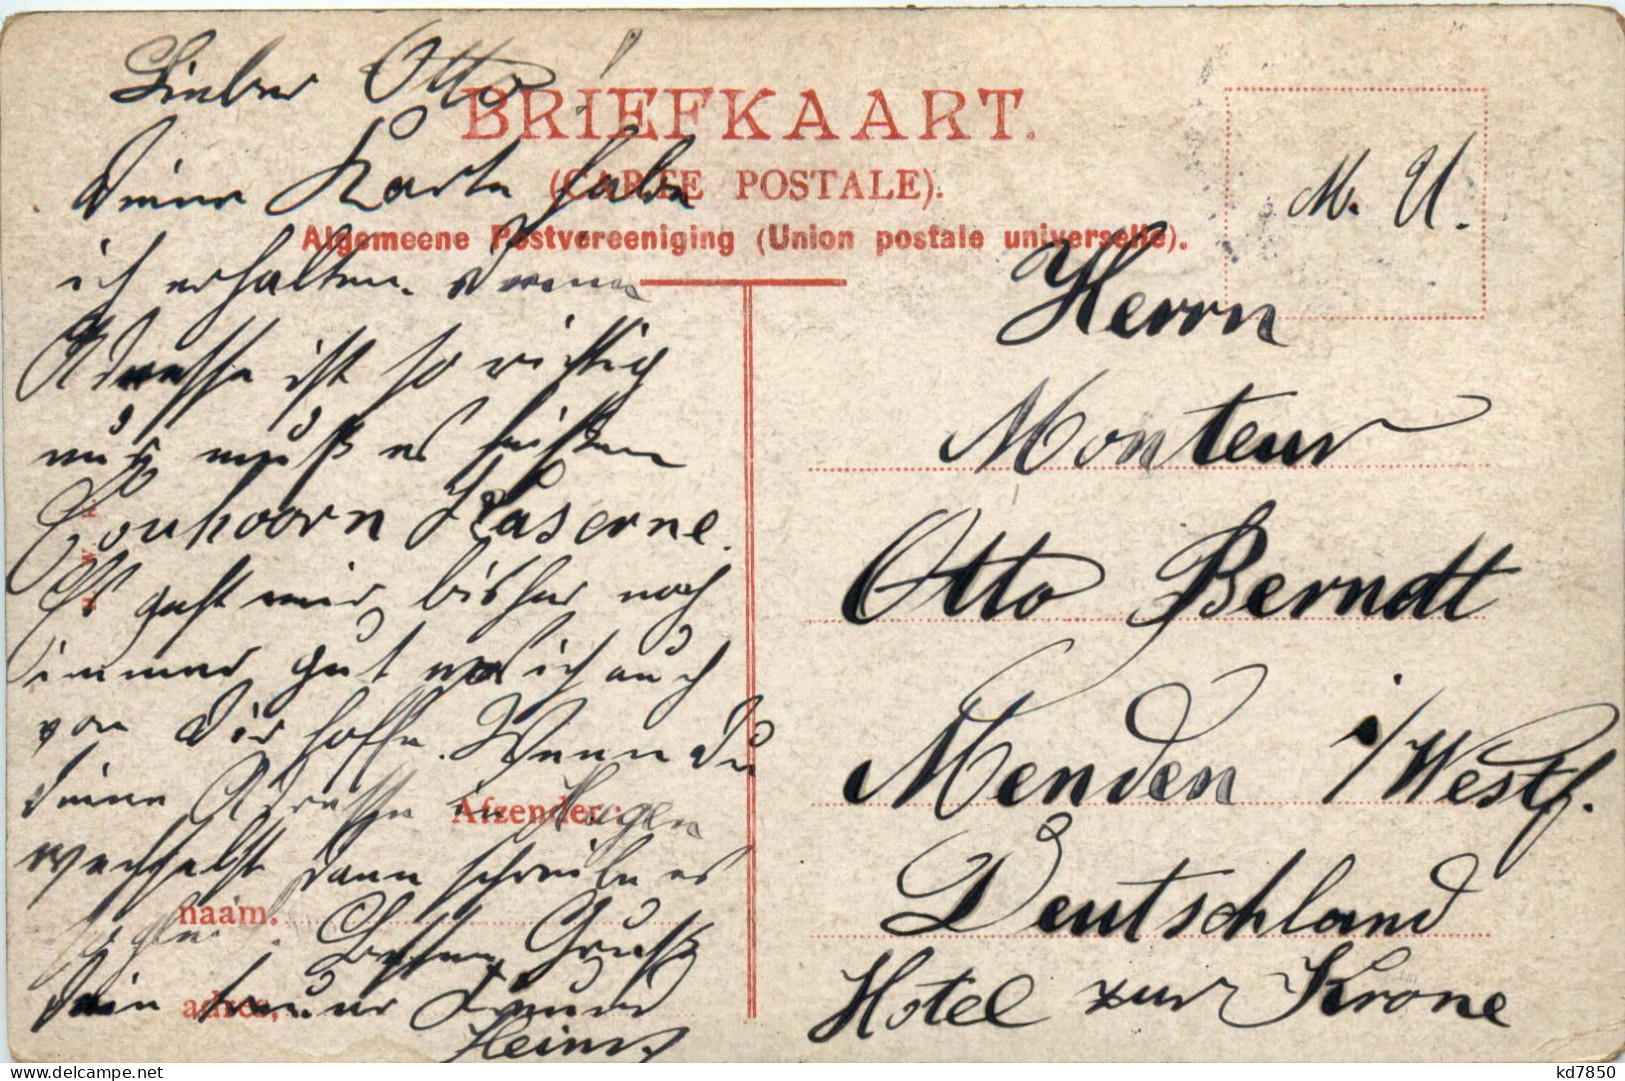 Lieber Otto!
BRIEFKAART.
Deine Karte habe
(CARTE POSTALE).
Algemeene Postvereeniging (Union postale universelle).
ich erhalten. Deine
Adresse ist so richtig
nur muß es heißen
Couhoorn Kaserne.
Es geht mir bisher noch
immer gut was ich auch
von Dir hoffe. Wenn Du
Deine Adresse in Hagen
wechselst dann schreibe es
sogleich. Besten Gruss
Dein treuer Freund
Heinr.
Afzender:
naam.
adres,
M. U.
Herrn
Monteur
Otto Berndt
Menden i/Westf.
Deutschland
Hotel zur Krone
kd7850